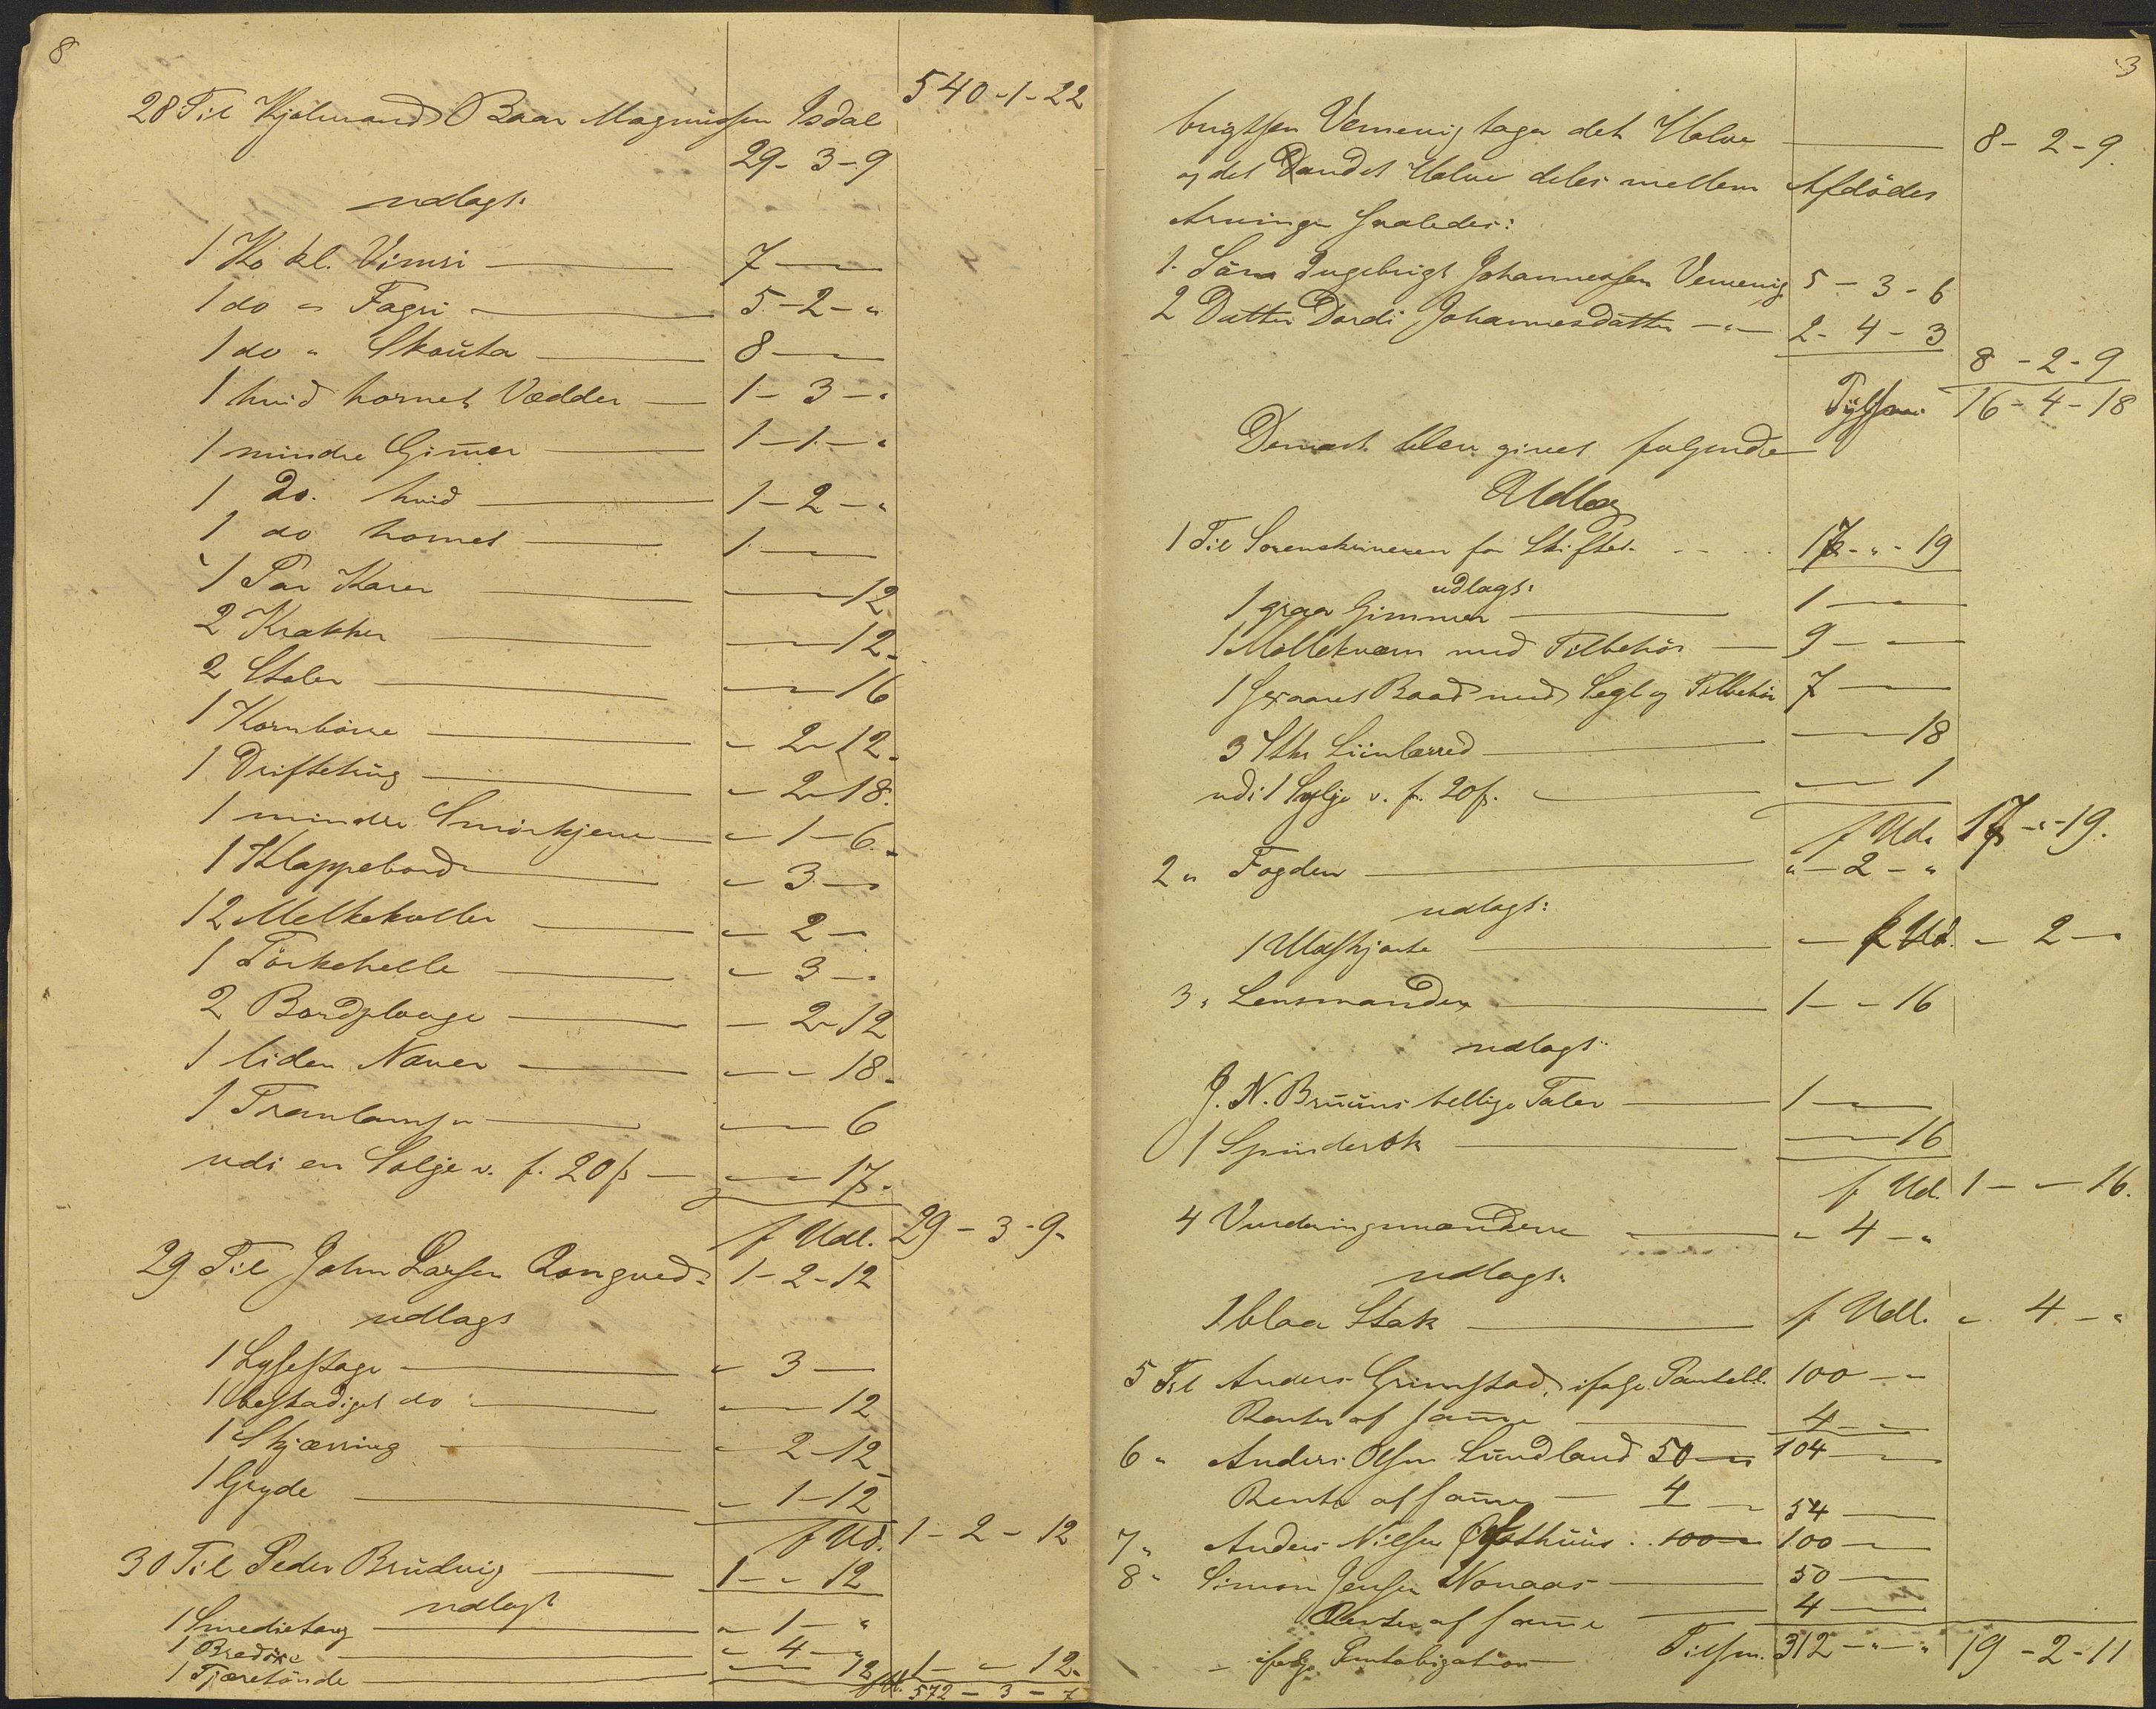 8
540-1-22
28 Til Kjølmand Baar Magnussen Isdal
29-3-9
udlagt:
1 Ko kl. Vimri — 7 —
1 do " Fagri — 5-2-"
1 do " Skauta — 8 —
1 hvid hornet Vædder — 1-3-"
1 mindre Gimer — 1-1-"
1 Do. hvid — 1-2-"
1 do hornet — 1 —
1 Par Karer — 12
2 Krakker — 12
2 Stoler — 16
1 Kornbørre — 2-12
1 Driftetrug — 2-18
1 mindre Smørkjerne — 1-6
1 Klappebord — 3 —
12 Melkekoller — 2 —
1 Törkehelle — 3 —
2 Bordplouge — 2-12
1 liden Naver — 18
1 Tranlampe — 6
udi en Solje v. f. 20ß — 17
f Udl. 29-3-9
29 Til John Larsen Rongved 1-2-12
udlagt
1 Lysestage — 3 —
1 beskadiget do — 12
1 Skjærring — 2-12
1 Gryde — 1-12
f Ud. 1-2-12
30 Til Peder Brudvig — 1-"-12
udlagt
1 Smedietang — 1-"
1 Bredöxe — 4-"
1 Tjæretönde — 12 1-"-12
572-3-7
3
brigtsen Vemenig tager det Halve — 8-2-9
og det Landet Halve deles mellem Afdödes
Arvinger saaledes:
1. Sön Ingebrigt Johannessen Vemenig 5-3-6
2 Datter Dordi Johannesdatter —"— 2-4-3
8-2-9
Tilsam. 16-4-18
Dernæst blev givet følgende
Udlæg
1 Til Sorenskriveren for Skiftet 17-"-19
udlagt:
1 graa Gimmer — 1 —
1 Møllekværn med Tilbehör — 9 —
1 Sexaaret Baad med Segl og Tilbehör 7 —
3 Stkr Liinlærred — 18
udi 1 Sylje v. f. 20ß. — 1
f Ud. 17-"-19.
2 " Fogden — "-2-"
udlagt:
1 Uldskjorte — f Ud. - 2 -
3 " Lensmanden — 1-"-16
udlagt
J. N. Bruuns hellige Taler — 1 —
1 Spinderok — 16
f Ud. 1-"-16.
4 Vurderingsmændene — 4-"
udlagt
1 blaa Stak — f Udl. " 4-"
5 Til Anders Grimstad, ifølge Pantobl. 100 —
Renter af samme — 4 —
6 " Anders Olsen Sundland 50 — 104 —
Rente af samme — 4 — 54 —
7 " Anders Nilsen Østhuus 100 — 100 —
8 " Simon Jensen Nonaas — 50 —
Renter af samme — 4 —
ifølge Pantobligation — Tilsm. 312-"-" 19-2-11